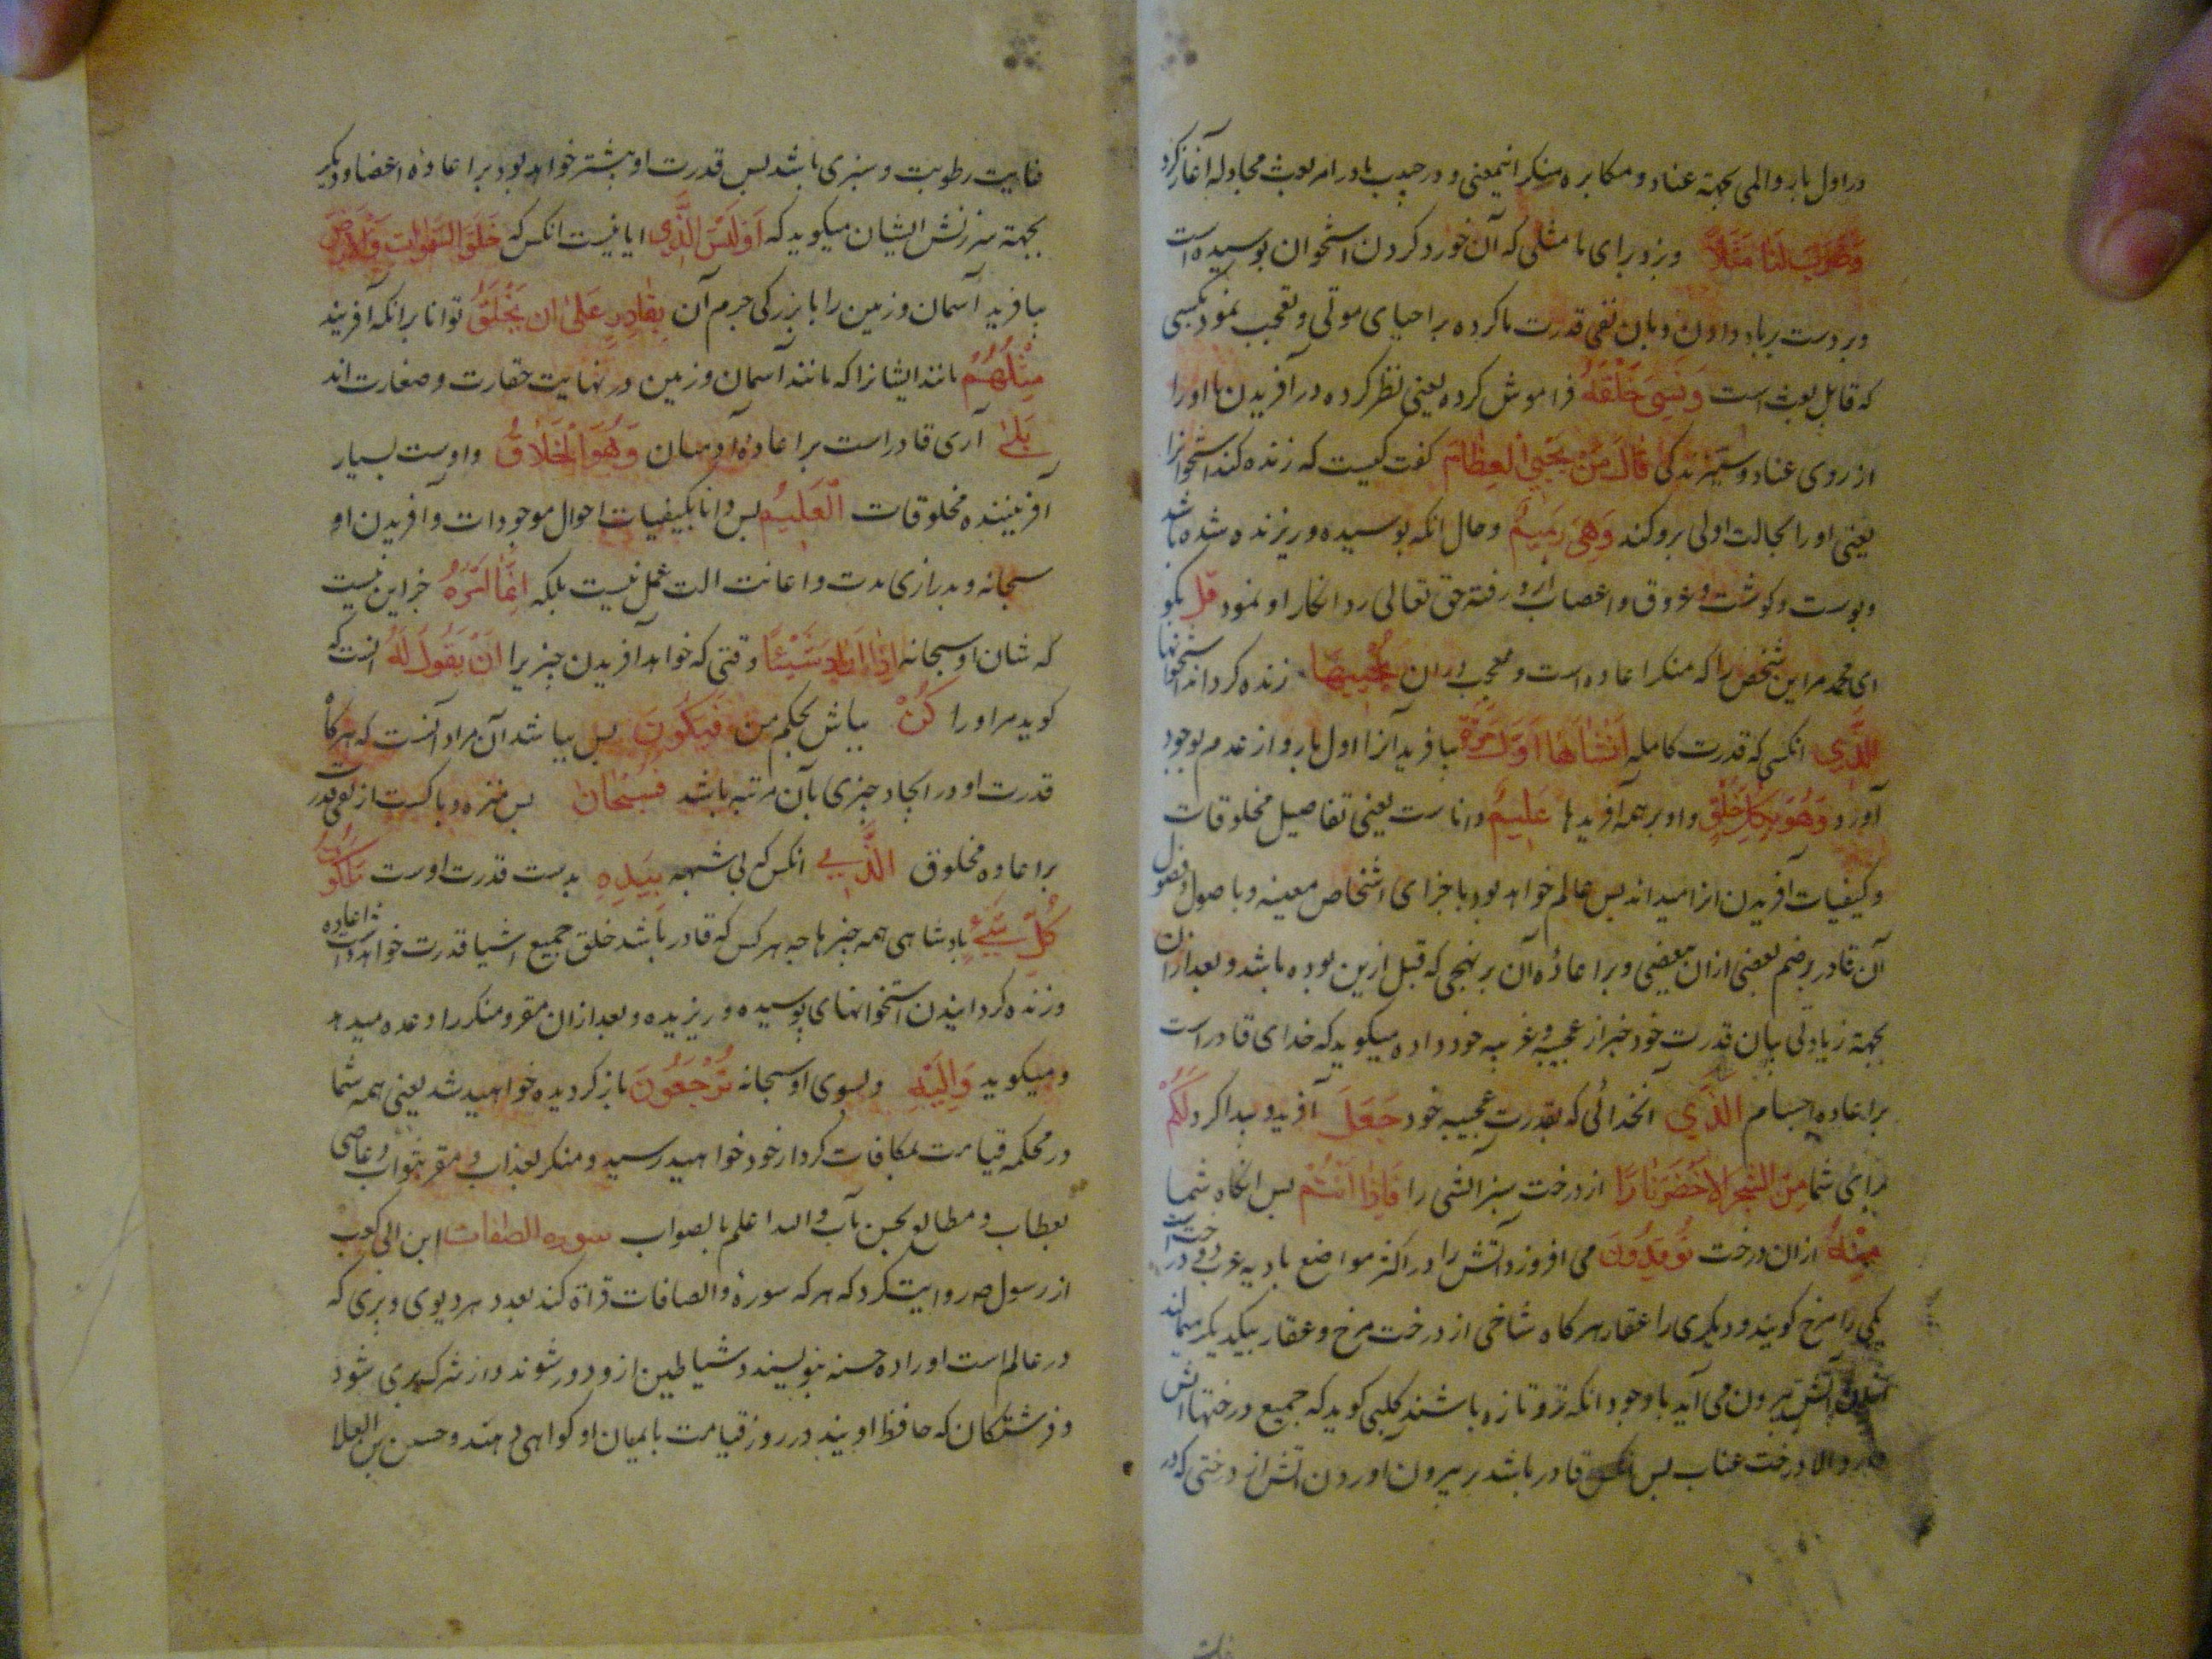 در اول بار والمی بجهة عناد و مکابره منکر اینمعنی و در جدب با در امر بعث مجادله آغاز کرد
وَضَرَبَ لَنَا مَثَلًا وبزد برای ما مثلی که آن خورد کردن استخوان بوسیده است
وبر دست بر باد دادن وبان نفی قدرت ما کرده بر احیای موتی و تعجب نمود بکسی
که قابل بعث است وَنَسِیَ خَلْقَهُ فراموش کرده یعنی نظر کرده در آفریدن ما اورا
از روی عناد وستیزندکی قَالَ مَنْ یُحْیِی الْعِظَامَ کفت کیست که زنده کند استخوانرا
یعنی اورا بحالت اولی برو کند وَهِیَ رَمِیمٌ وحال انکه بوسیده وریزنده شده باشد
وبوست وکوشت وعروق واعصاب ازو رفته حق تعالی رد انکار او نمود قل بکو
ای محمد مر این شخص را که منکر اعاده است ومعجب دران یُحْیِیهَا زنده کرداند استخوانها
الَّذِی انکسی که قدرت کامله اَنْشَاَهَا اَوَّلَ مَرَّةٍ بیافرید آنرا اول بار واز عدم بوجود
آورد وَهُوَ بِکُلِّ خَلْقٍ واو بر همه آفریدها عَلِیمٌ داناست یعنی تفاصیل مخلوقات
وکیفیات آفریدن انرا میداند بس عالم خواهد بود باجزای اشخاص معینه وباصول وفصول
آن قادر بر ضم بعضی ازان ببعضی وبر اعادۀ آن بر نهجی که قبل ازین بوده باشد وبعد ازان
بجهة زیادتی بیان قدرت خود خبر از عجیبه وغریبه خود داده میکوید که خدای قادر است
بر اعاده اجسام الَّذِی آنخدائی که بقدرت عجیبه خود جَعَلَ آفرید وپیدا کرد لَکُمْ
برای شما مِنَ الشَّجَرِ الْاَخْضَرِ نَارًا از درخت سبز آتشی را فَاِذَا اَنْتُمْ بس انکاه شما
مِنْهُ ازان درخت تُوقِدُونَ می افروزد آتش را در اکثر مواضع بادیه عرب دو درخت است
یکی را مرخ کویند ودیکری را عقار هرکاه شاخی از درخت مرخ وعقار بیکدیکر میمالند
آتش بیرون می آید با وجود انکه تر وتازه باشند کلبی کوید که جمیع درختها آتش
دارد الا درخت عناب بس انکس قادر باشد بر بیرون آوردن آتش از درختی که در
غایت رطوبت وسبزی باشد بس قدرت او بیشتر خواهد بود بر اعادۀ اعضا ودیکر
بجهة سرزنش ایشان میکوید که اَوَلَیْسَ الَّذِی ایا نیست انکس که خَلَقَ السَّمٰوَاتِ وَالْاَرْضَ
بیافرید آسمان وزمین را با بزرکی جرم آن بِقَادِرٍ عَلٰی اَنْ یَخْلُقَ توانا بر انکه آفریند
مِثْلَهُمْ مانند ایشانرا که مانند آسمان وزمین در نهایت حقارت وصغارت اند
بَلٰی آری قادر است بر اعادۀ آدمیان وَهُوَ الْخَلَّاقُ واوست بسیار
آفریننده مخلوقات الْعَلِیمُ بس دانا بکیفیات احوال موجودات وآفریدن او
سبحانه وبدرازی مدت واعانت الت عمل نیست بلکه اِنَّمَا اَمْرُهُ جز این نیست
که شان او سبحانه اِذَا اَرَادَ شَیْئًا وقتی که خواهد آفریدن چیزیرا اَنْ یَقُولَ لَهُ انست که
کوید مر اورا کُنْ بباش بحکم من فَیَکُونُ بس بباشد آن مراد آنست که هرکاه
قدرت او در ایجاد چیزی بآن مرتبه باشد فَسُبْحَانَ بس منزه وپاکست از نفی قدرت
بر اعاده مخلوق الَّذِی انکس که بی شبهه بِیَدِهِ بدست قدرت اوست مَلَکُوتُ
کُلِّ شَیْءٍ بادشاهی همه چیزها چه هر کس که قادر باشد خلق جمیع اشیا قدرت خواهد داشت بر اعاده
وزنده کردانیدن استخوانهای بوسیده وریزیده وبعد ازان مقر ومنکر را وعده میدهد
ومیکوید وَاِلَیْهِ وبسوی او سبحانه تُرْجَعُونَ باز کردیده خواهید شد یعنی همه شما
در محکمه قیامت بمکافات کردار خود خواهید رسید ومنکر بعذاب ومقر بثواب وعاصی
بعطاب ومطالع بحسن مآب والله اعلم بالصواب سوره الصافات ابن ابی کعب
از رسول ص روایت کرد که هر که سورۀ والصافات قراة کند بعدد هر دیوی وپری که
در عالم است اورا ده حسنه بنویسند وشیاطین ازو دور شوند واز شرک بری شود
وفرشتکان که حافظ اویند در روز قیامت بایمان او کواهی دهند وحسن بن العلا